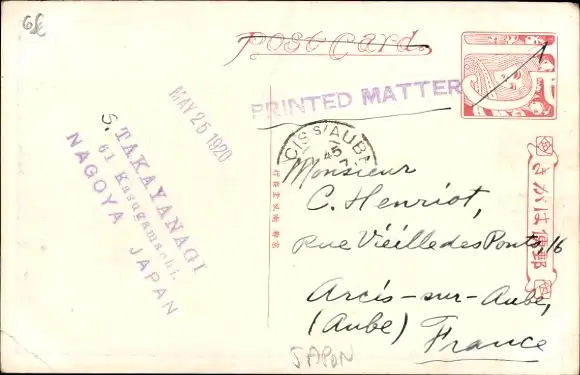 6£
Post Card.
MAY 25 1920
PRINTED MATTER
CIS S/AUBE
45
S. TAKAYANAGI
61 Kasugamachi.
NAGOYA JAPAN
Monsieur
C. Henriot,
Rue Vieille des Ponts, 16
Arcis-sur-Aube,
(Aube) France
きがは便郵
JAPON